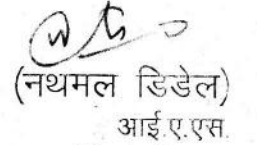 (नथमल डिडेल)
आई.ए.एस.